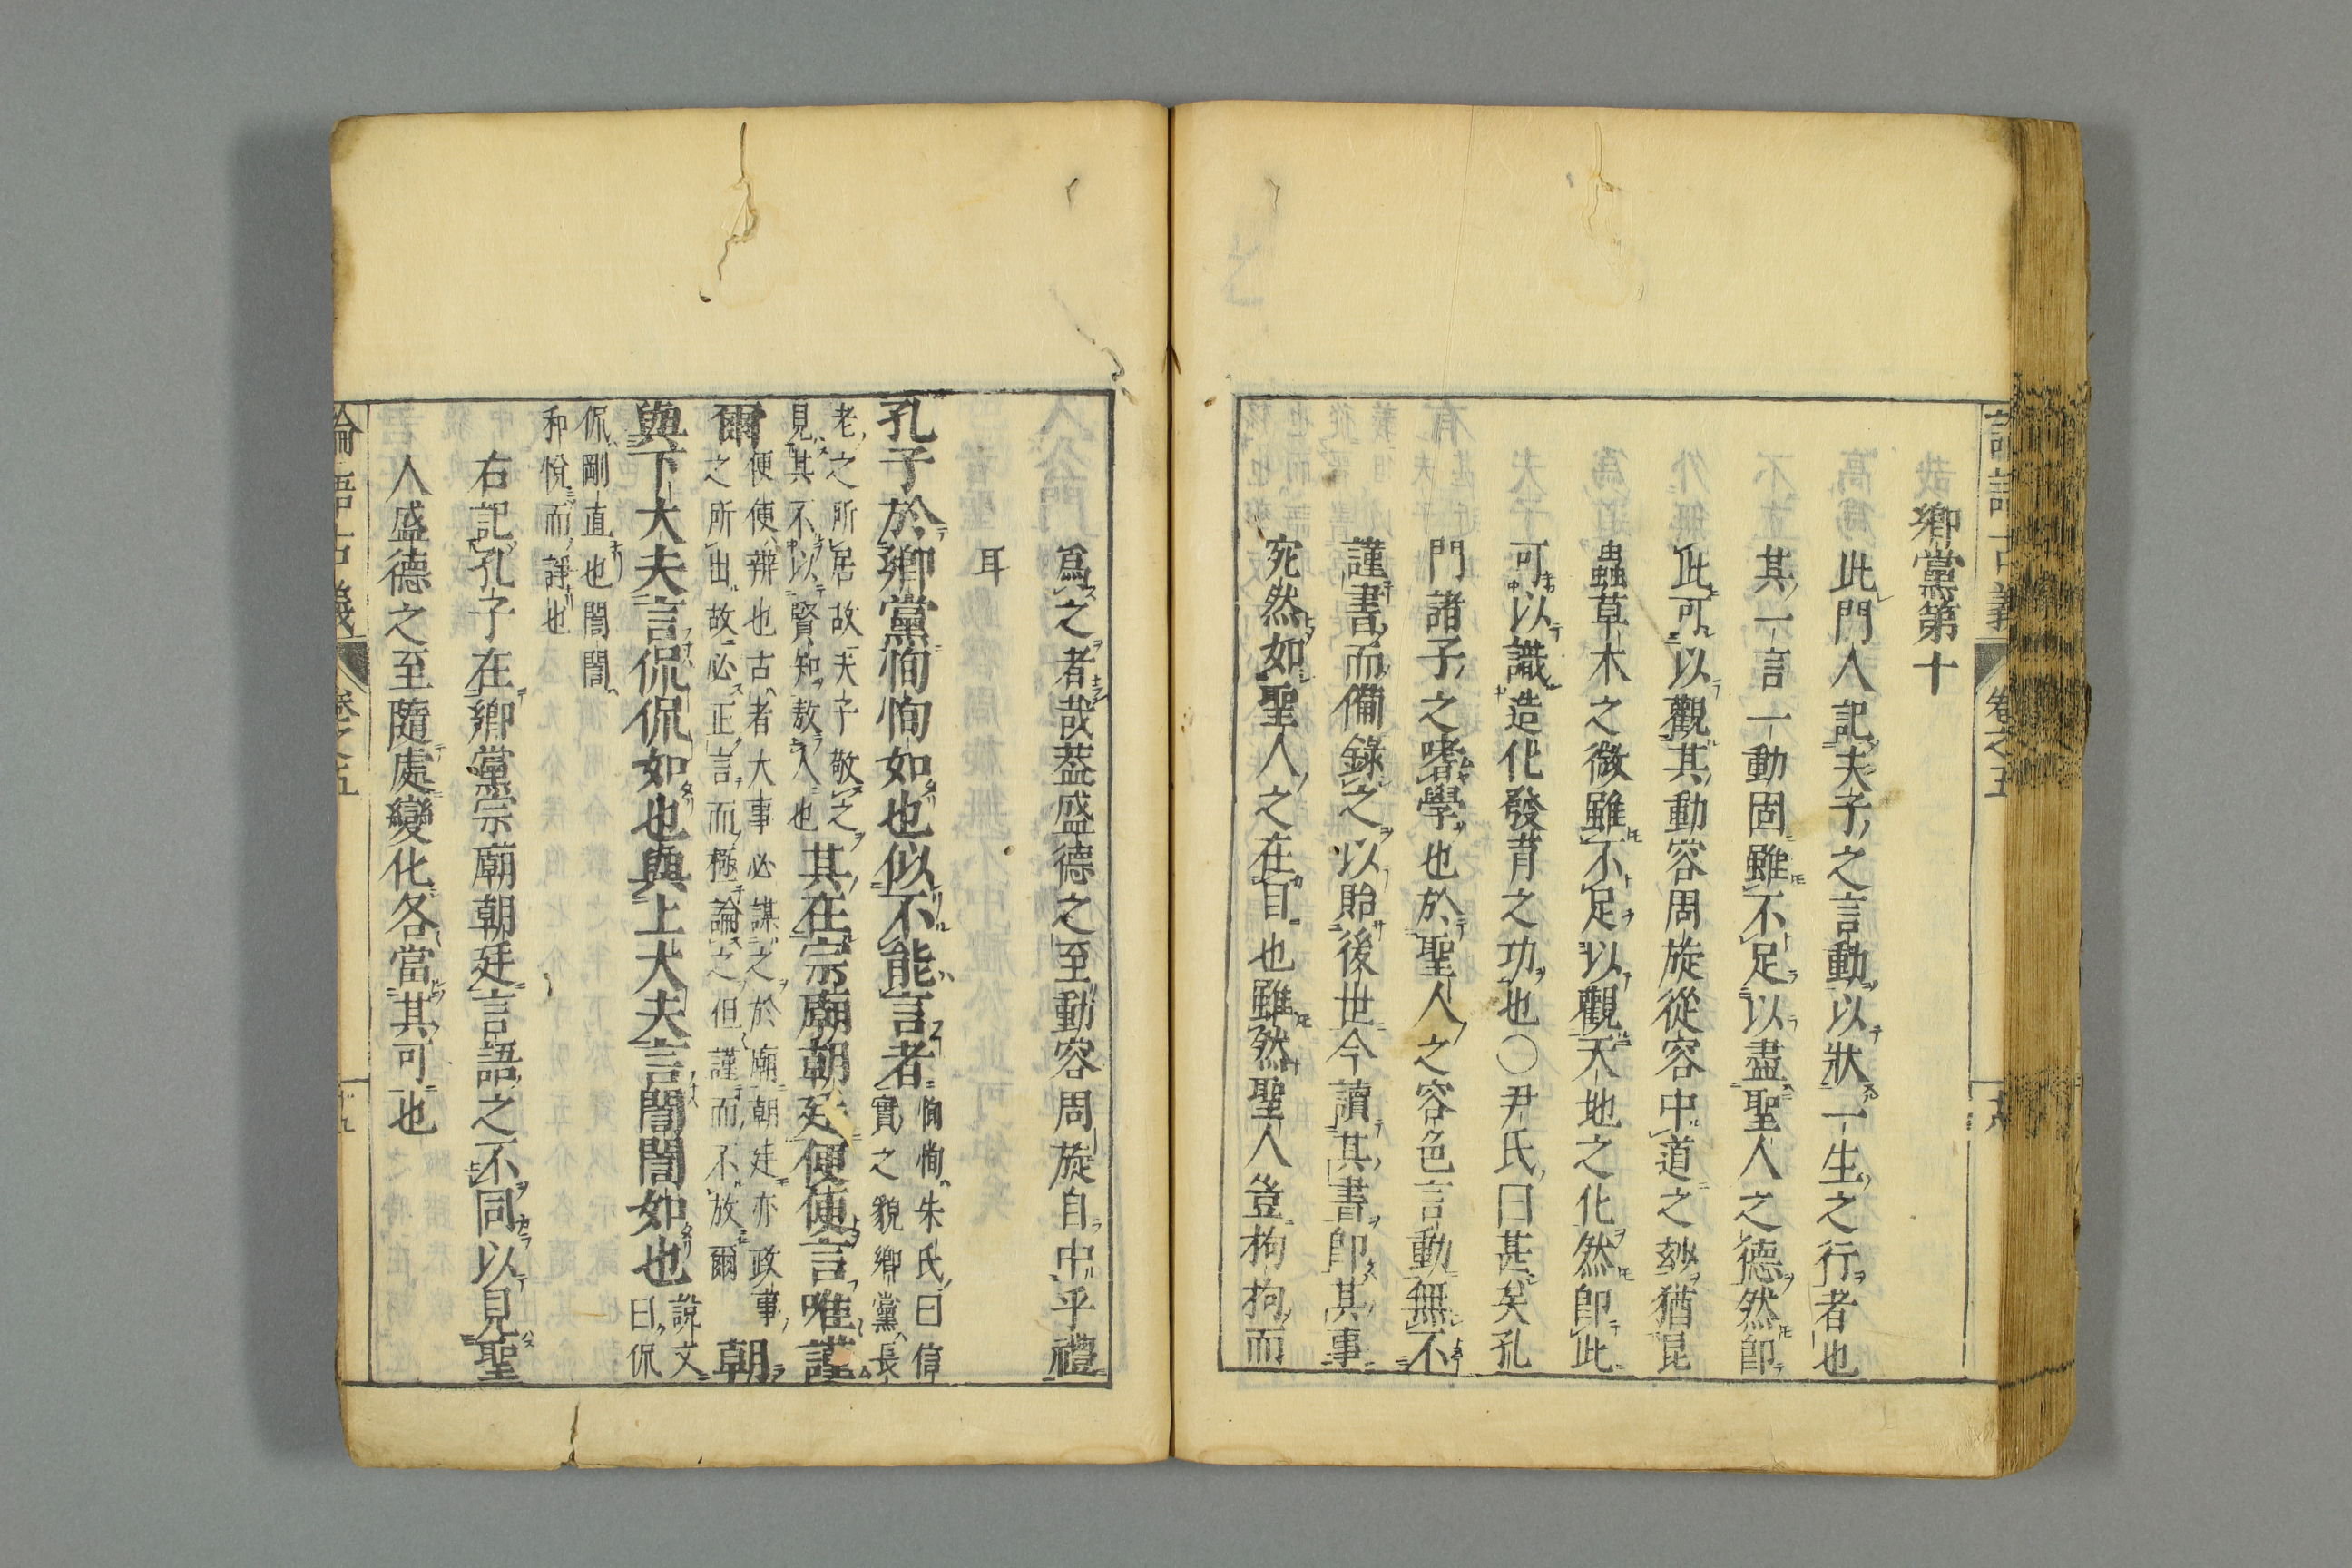 論語古義 卷之五
鄉黨第十
此門人記夫子之言動以狀一生之行者也
其一言一動固雖不足以盡聖人之德然即
此可以觀其動容周旋從容中道之妙猶昆
蟲草木之微雖不足以觀天地之化然即此
可以識造化發育之功也〇尹氏曰甚矣孔
門諸子之嗜學也於聖人之容色言動無不
謹書而備錄之以貽後世今讀其書即其事
宛然如聖人之在目也雖然聖人豈拘拘而
爲之者哉葢盛德之至動容周旋自中乎禮
耳
孔子於鄉黨恂恂如也似不能言者恂恂朱氏曰信實之貌鄉黨長
老之所居故夫子敬之見其不以賢知敖人也其在宗廟朝廷便便言唯謹
爾便便辨也古者大事必謀之於廟朝廷亦政事之所出故必正言而極論之但謹而不放爾朝
與下大夫言侃侃如也與上大夫言誾誾如也說文曰侃
侃剛直也誾誾和悅而諍也
右記孔子在鄉黨宗廟朝廷言語之不同以見聖
人盛德之至隨處變化各當其可也
論語古義 卷之五 十九